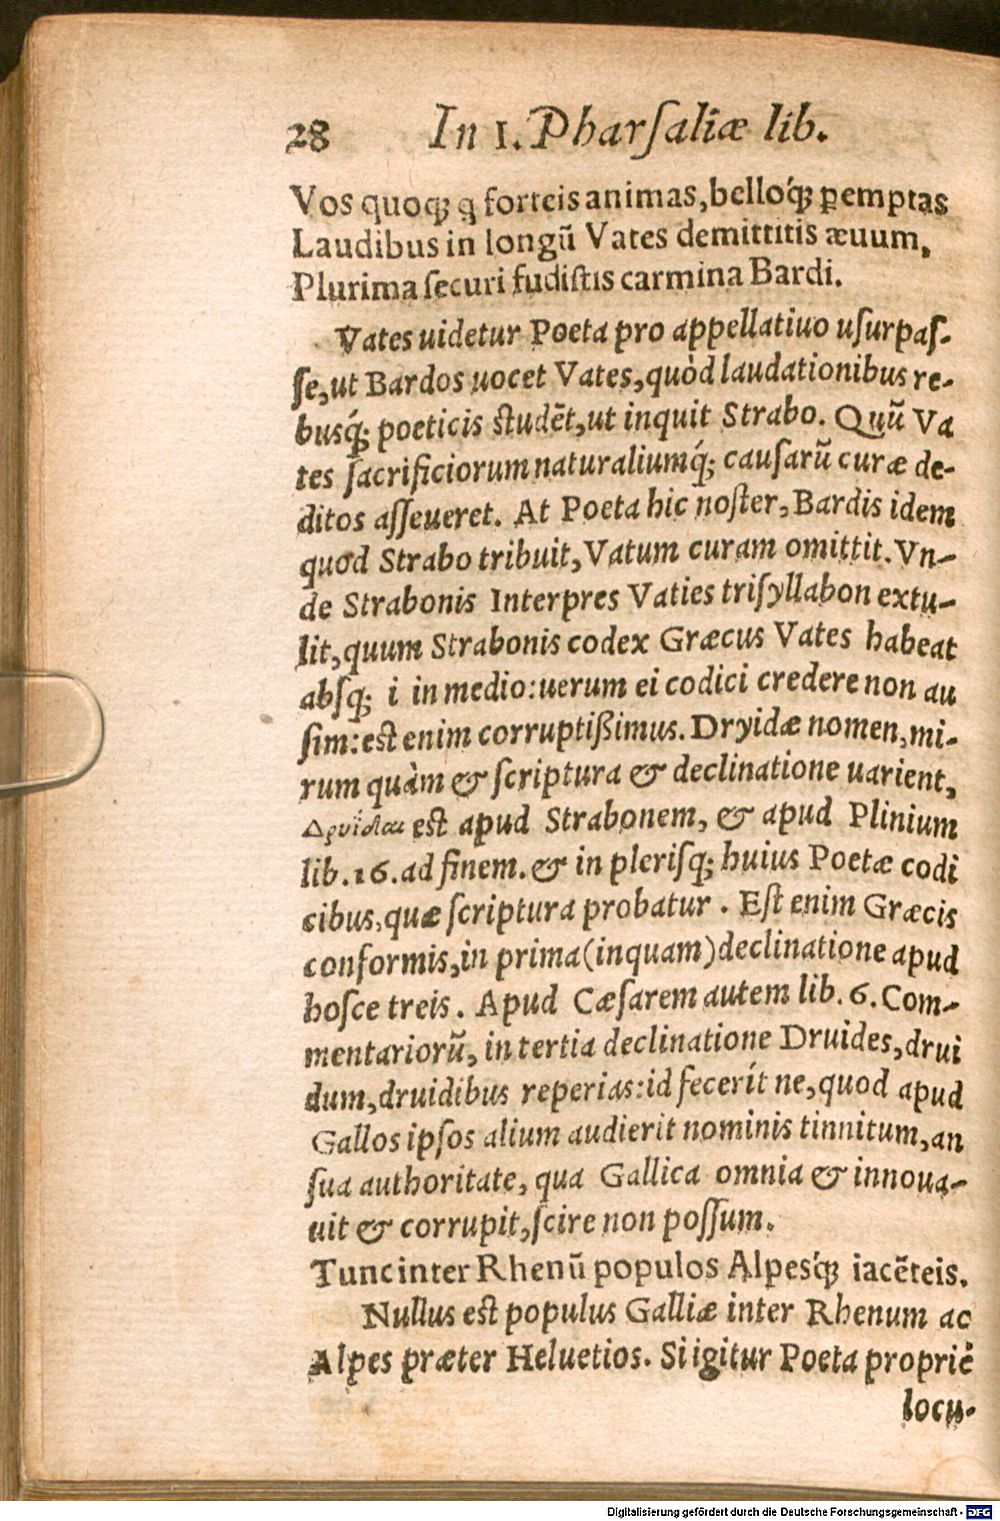 28 In I. Pharsaliæ lib.
Vos quoqꝫ q̃ forteis animas, belloq́ꝫ ꝑemptas
Laudibus in longũ Vates demittitis æuum,
Plurima ſecuri fudiſtis carmina Bardi.
Vates uidetur Poeta pro appellatiuo uſurpaſ-
ſe, ut Bardos uocet Vates, quòd laudationibus re-
busq́ꝫ poeticis ſtudẽt, ut inquit Strabo. Quũ Va
tes ſacrificiorum naturaliumq́ꝫ cauſarũ curæ de-
ditos aſſeueret. At Poeta hic noſter, Bardis idem
quod Strabo tribuit, Vatum curam omittit. Vn-
de Strabonis Interpres Vaties triſyllabon extu-
lit, quum Strabonis codex Græcus Vates habeat
abſqꝫ i in medio: uerum ei codici credere non au
ſim: eſt enim corruptißimus. Dryidæ nomen, mi-
rum quàm & ſcriptura & declinatione uarient,
Δρυΐδαι eſt apud Strabonem, & apud Plinium
lib. 16. ad finem. & in pleriſqꝫ huius Poetæ codi
cibus, quæ ſcriptura probatur. Eſt enim Græcis
conformis, in prima (inquam) declinatione apud
hoſce treis. Apud Cæſarem autem lib. 6. Com-
mentariorũ, in tertia declinatione Druides, drui
dum, druidibus reperias: id fecerít ne, quod apud
Gallos ipſos alium audierit nominis tinnitum, an
ſua authoritate, qua Gallica omnia & innoua-
uit & corrupit, ſcire non poſſum.
Tunc inter Rhenũ populos Alpesq́ꝫ iacẽteis.
Nullus eſt populus Galliæ inter Rhenum ac
Alpes præter Heluetios. Si igitur Poeta propriè
locu-
Digitalisierung gefördert durch die Deutsche Forschungsgemeinschaft - DFG